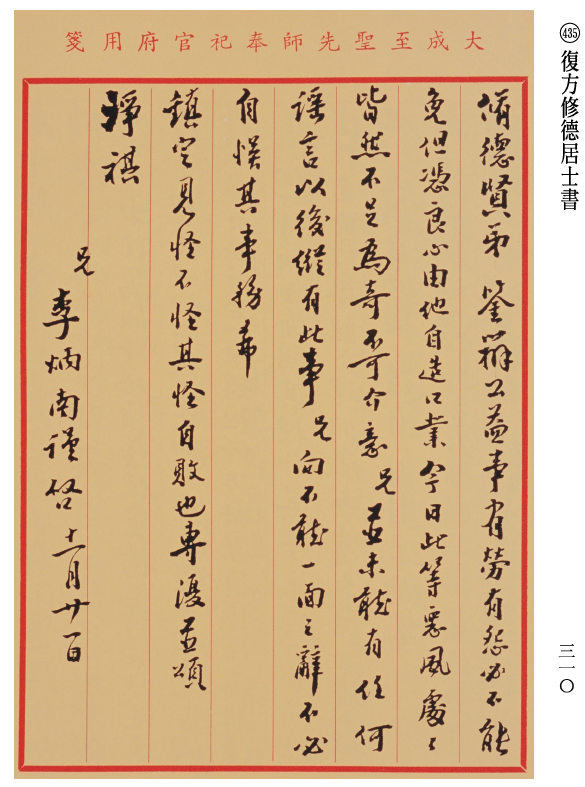 ㊟435 復方修德居士書
大成至聖先師奉祀官府用箋
脩德賢弟 鑒辦公益事有勞有怨必不能
免但憑良心由他自造口業今日此等惡風處々
皆然不足為奇不可介意兄並未聽有任何
謠言以後縱有此事兄向不聽一面之辭不必
自悞其事務希
鎮定見怪不怪其怪自敗也專復並頌
靜祺
兄
李炳南謹啓 十一月廿一日
三一〇